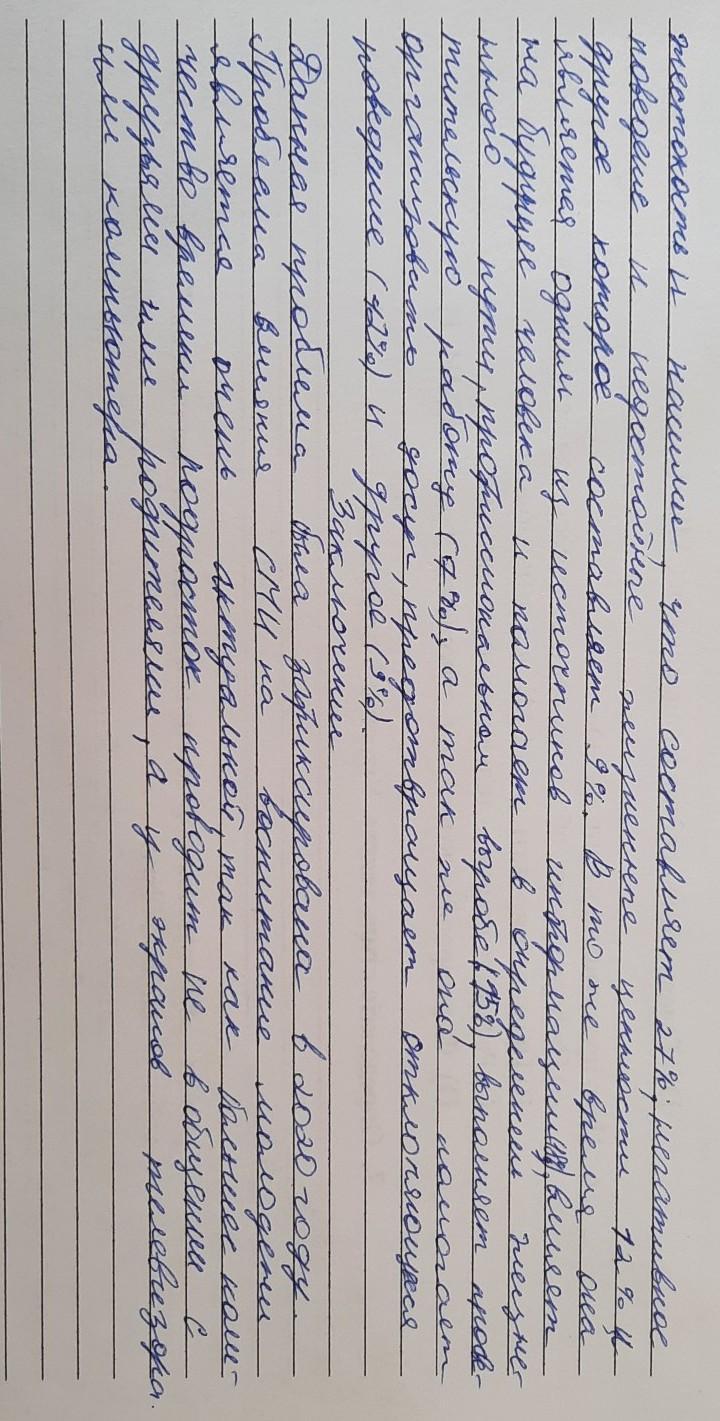 жестокость и насилие, что составляет 27%; негативное
поведение и недостойные жизненные ценности 12% и
другое которое составляет 9%. В то же время она
является одним из источников информации, влияет
на будущее человека и помогает в определении жизне-
нного пути, профиссиональном выборе (15%), выполняет просве-
тительскую работу (7%); а так же она помогает
организовать досуг, предотвращает отклоняющееся
поведение (42%) и другое (9%).
Заключение
Данная проблема была зафиксирована в 2020 году.
Проблема влияния СМИ на воспитание молодежи
является очень актуальной, так как большее коли-
чество времени подросток проводит не в общении с
друзьями или родителями, а у экранов телевизора.
или компьютера.